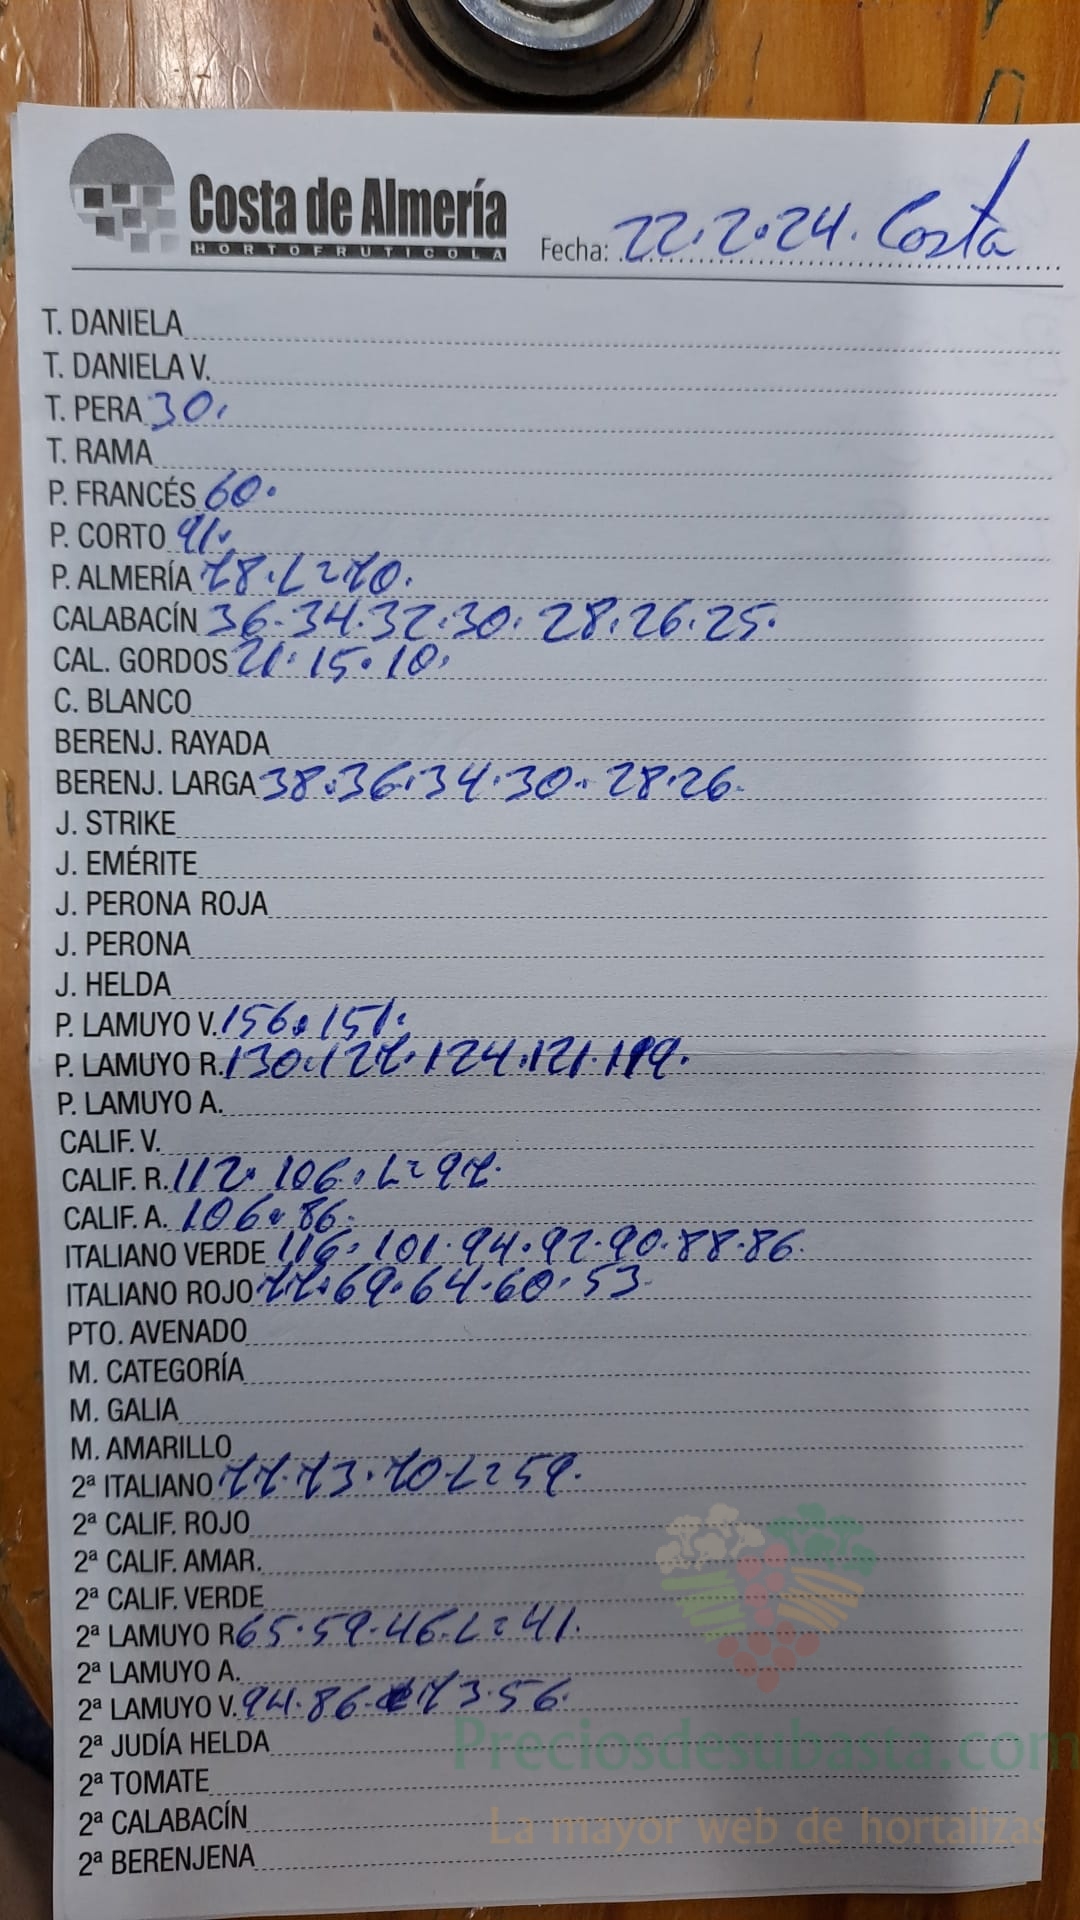 Costa de Almería
HORTOFRUTICOLA
Fecha: 22.2.24. Costa
T. DANIELA
T. DANIELA V.
T. PERA 30.
T. RAMA
P. FRANCÉS 60.
P. CORTO 91.
P. ALMERÍA 78. L=70.
CALABACÍN 36.34.32.30. 28.26.25.
CAL. GORDOS 21. 15. 10.
C. BLANCO
BERENJ. RAYADA
BERENJ. LARGA 38.36.34.30. 28.26.
J. STRIKE
J. EMÉRITE
J. PERONA ROJA
J. PERONA
J. HELDA
P. LAMUYO V. 156. 151.
P. LAMUYO R. 130. 127. 124. 121. 119.
P. LAMUYO A.
CALIF. V.
CALIF. R. 112. 106. L=97.
CALIF. A. 106. 86.
ITALIANO VERDE 116. 101. 94. 92. 90. 88. 86.
ITALIANO ROJO 77. 69. 64. 60. 53.
PTO. AVENADO
M. CATEGORÍA
M. GALIA
M. AMARILLO
2ª ITALIANO 77. 73. 70. L=59.
2ª CALIF. ROJO
2ª CALIF. AMAR.
2ª CALIF. VERDE
2ª LAMUYO R 65. 59. 46. L=41.
2ª LAMUYO A.
2ª LAMUYO V. 94. 86. 73. 56.
2ª JUDÍA HELDA
2ª TOMATE
2ª CALABACÍN
2ª BERENJENA
Preciosdesubasta.com
La mayor web de hortalizas